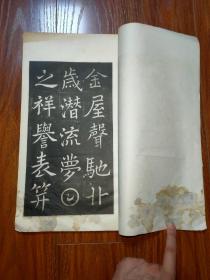 金屋聲馳丱
歲潛流夢𡆠
之祥譽表笄